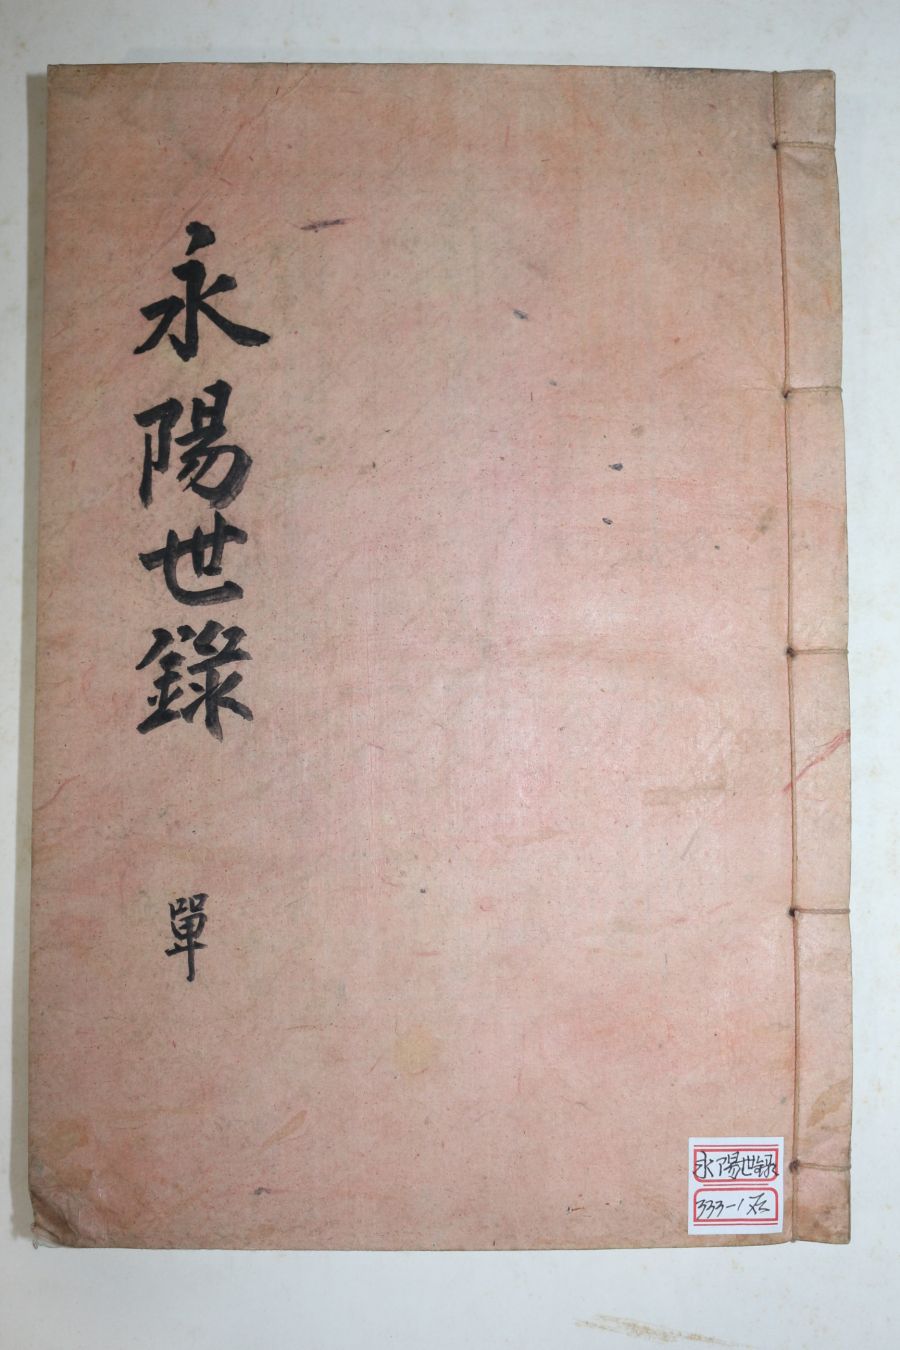 永陽世錄
單
永陽世録
333-1